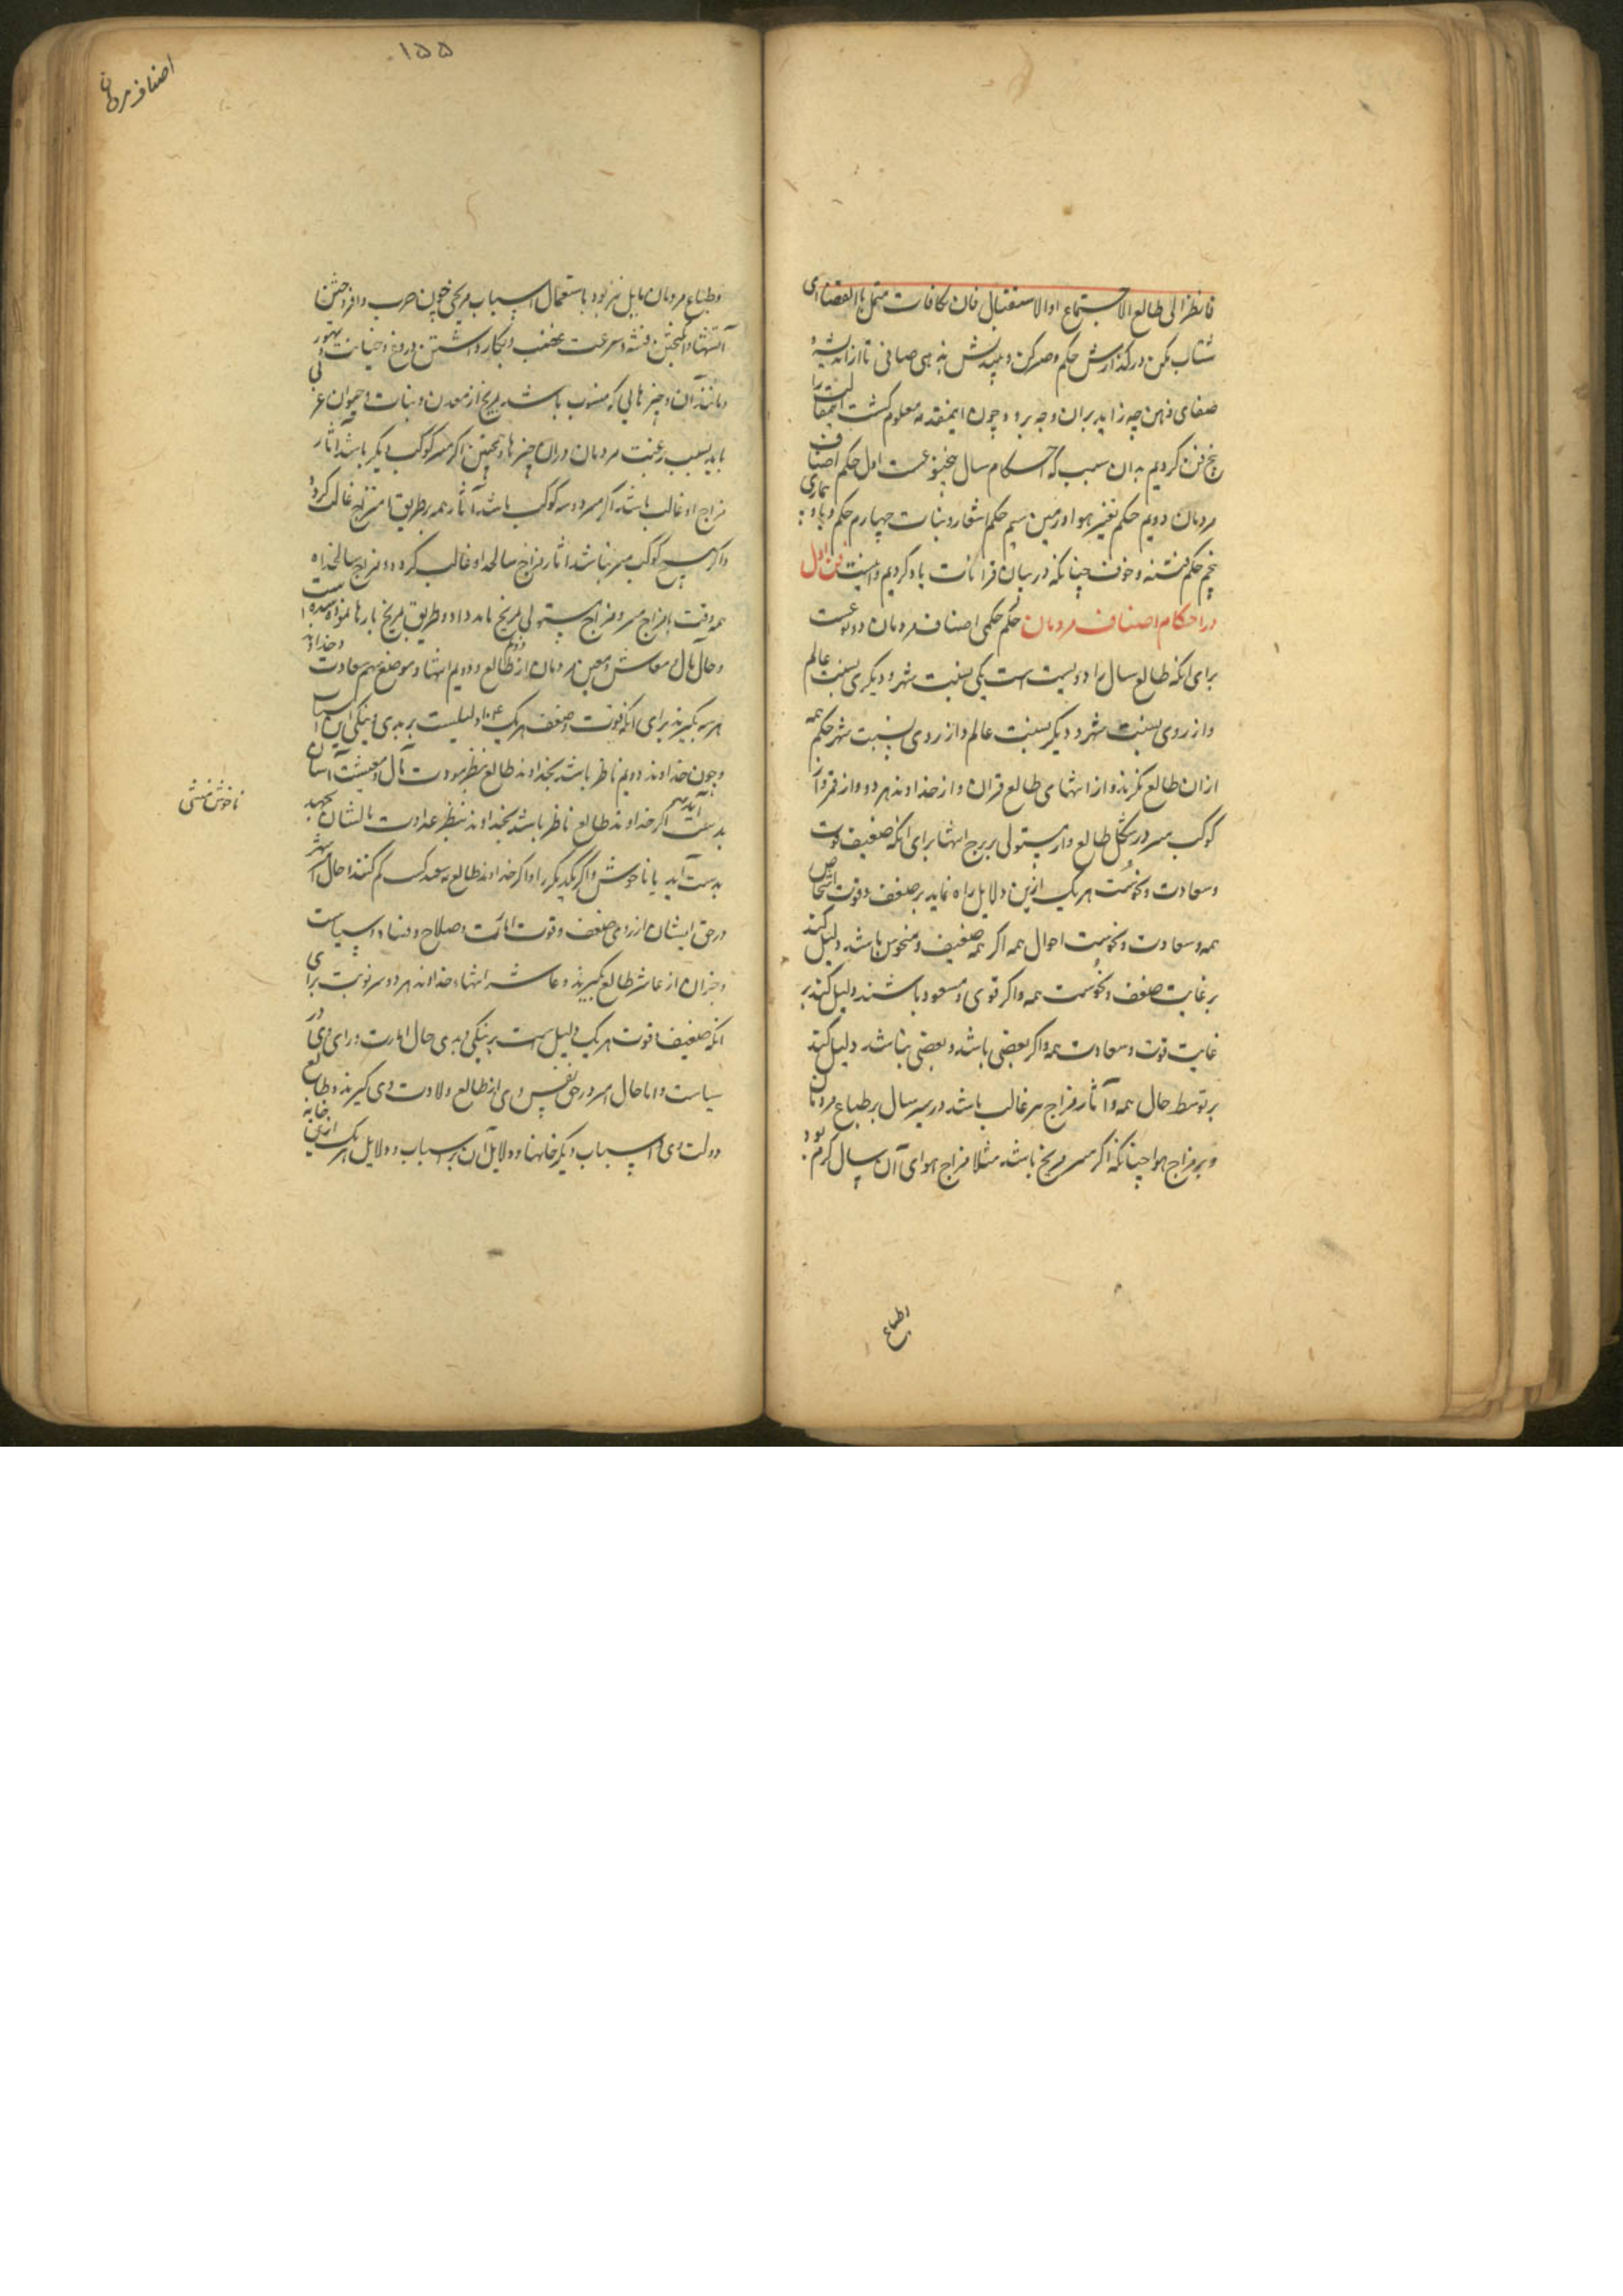 فانظر الی طالع الاجتماع او الاستقبال فان کافات متحل بها القضا ای
شتاب مکن در گذارش حکم و صبر کن و بیندیش به ذهن صافی تا از اندیشه و
صفای ذهن چه زاید بران وجه برو و چون اینمقدمه معلوم کشت اینمقالت را
پنج فن کردیم بدان سبب که احکام سال پنج نوعست اول حکم اصناف
مردمان دویم حکم تغییر هوا و زمین سیم حکم اشعار و نبات چهارم حکم وبا و بیماری
پنجم حکم فتنه و خوف چنانکه در بیان قرانات یاد کردیم و اینست فن اول
در احکام اصناف مردمان حکم حکمی اصناف مردمان دو نوعست
برای انکه طالع سال را دو نسبت است یکی بنسبت شهر و دیگری بنسبت عالم
و از روی بنسبت شهر و دیگر بنسبت عالم و از روی بنسبت شهر حکم همه
از ان طالع نکرند و از انتهای طالع قران و از خداوند هر دو و از قمر و از
کوکب مبتز در شکل طالع و از مستولی بر برج انتها برای انکه ضعیف قوت
و سعادت و نحوست هر یک ازین دلایل راه نماید بر ضعف و قوت اشخاص
همه و سعادت و نحوست احوال همه اکر همه ضعیف و منحوس باشد دلیل کند
بر غایت ضعف و نحوست همه و اکر قوی و مسعود باشند دلیل کند بر
غایت قوت و سعادت همه و اکر بعضی باشد و بعضی نباشد دلیل کند
بر توسط حال همه و آثار مزاج مبتز غالب باشد در سیر سال بر طباع مردمان
و بر مزاج هوا چنانکه اکر مبتز مریخ باشد مثلا مزاج هوای آن سال کرم بود
وطباع
۱۵۵
اصناف مردمان
و طباع مردمان مایل تر بود باستعمال اسباب مریخی چون حرب و افروختن
آتشها و انکیختن فتنه و سرعت غضب و بکار داشتن دروغ و خیانت تهور
و مانند آن و چیز هایی که منسوب باشد بمریخ از معدن و نبات و حیوان
یابد بسبب رغبت مردمان دران چیزها و همچنین اکر مبتز کوکب دیکر باشد آثار
مزاج او غالب باشد اکر مبتز دو سه کوکب باشد آثار همه بطریق امتزاج غالب کردد
و اکر هیچ کوکب مبتز نباشد آثار مزاج سالخداه او غالب کردد و مزاج سالخداه
همه وقت با مزاج مبتز و مزاج مستولی مریخ باید داد و طریق مریخ بارها نموده شده است
و حال مال و معاش و معین مردمان از طالع دوم و دویم انتها و موضع سهم سعادت و خداوند
هر سه بگیرند برای انکه قوت و ضعف هر یک دلیلیست بر بدی و نیکی این اسباب
و چون خداوند دویم ناظر باشد بخداوند طالع بنظر مودت مال و معیشت آسان
بدست آید و اکر خداوند طالع ناظر باشد بخداوند بنظر عداوت مالشان بجهد
بدست آید یا ناخوش و اکر یکدیکر را و اکر خداوند طالع نه سعد کسب کم کنند و حال شهر
در حق ایشان از روی ضعف و قوت امارت و صلاح و فساد و سیاست
و جز ان از عاشر طالع بگیرند و عاشر انتهاء خداوند هر دو سر نوبت برای
انکه ضعیف قوت هر یک دلیل است بر نیکی و بدی حال امارت و رای وی در
سیاست و اما حال امیر در حق نفس وی از طالع ولادت وی کیرند و طالع
دولت وی و اسباب دیکر خانها و دلایل آن بر اسباب و دلایل هر یک ازین خانه
ناخوش منشی